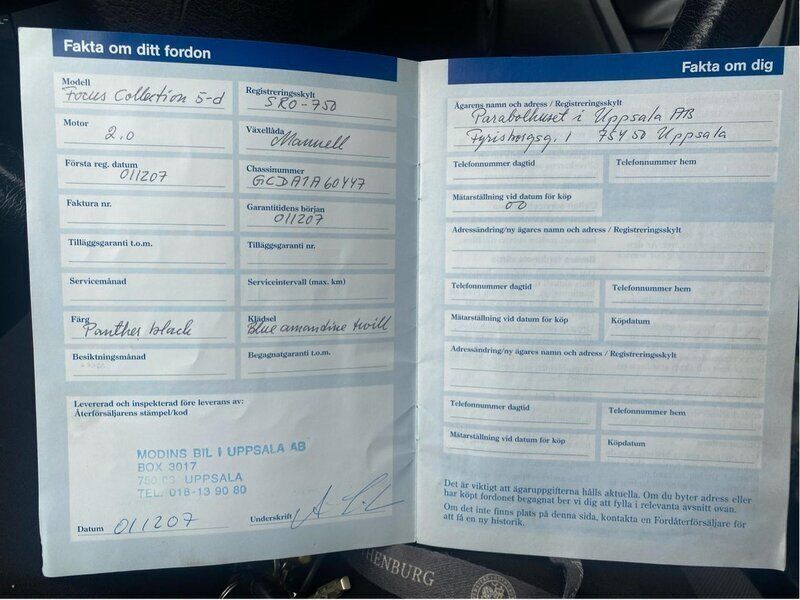 Fakta om ditt fordon
Modell
Focus Collection 5-d
Registreringsskylt
SRO-750
Motor
2.0
Växellåda
Manuell
Första reg. datum
011207
Chassinummer
GCDA1A60447
Faktura nr.
Garantitidens början
011207
Tilläggsgaranti t.o.m.
Tilläggsgaranti nr.
Servicemånad
Serviceintervall (max. km)
Färg
Panther black
Klädsel
Blue amandine twill
Besiktningsmånad
Begagnatgaranti t.o.m.
Levererad och inspekterad före leverans av:
Återförsäljarens stämpel/kod
MODINS BIL I UPPSALA AB
BOX 3017
750 03 UPPSALA
TEL. 018-13 90 80
Datum 011207
Underskrift
Fakta om dig
Ägarens namn och adress / Registreringsskylt
Parabolhuset i Uppsala AB
Fyrisborgsg. 1 75450 Uppsala
Telefonnummer dagtid
Telefonnummer hem
Mätarställning vid datum för köp
00
Adressändring/ny ägares namn och adress / Registreringsskylt
Telefonnummer dagtid
Telefonnummer hem
Mätarställning vid datum för köp
Köpdatum
Adressändring/ny ägares namn och adress / Registreringsskylt
Telefonnummer dagtid
Telefonnummer hem
Mätarställning vid datum för köp
Köpdatum
Det är viktigt att ägaruppgifterna hålls aktuella. Om du byter adress eller
har köpt fordonet begagnat ber vi dig att fylla i relevanta avsnitt ovan.
Om det inte finns plats på denna sida, kontakta en Fordåterförsäljare för
att få en ny historik.
HENBURG